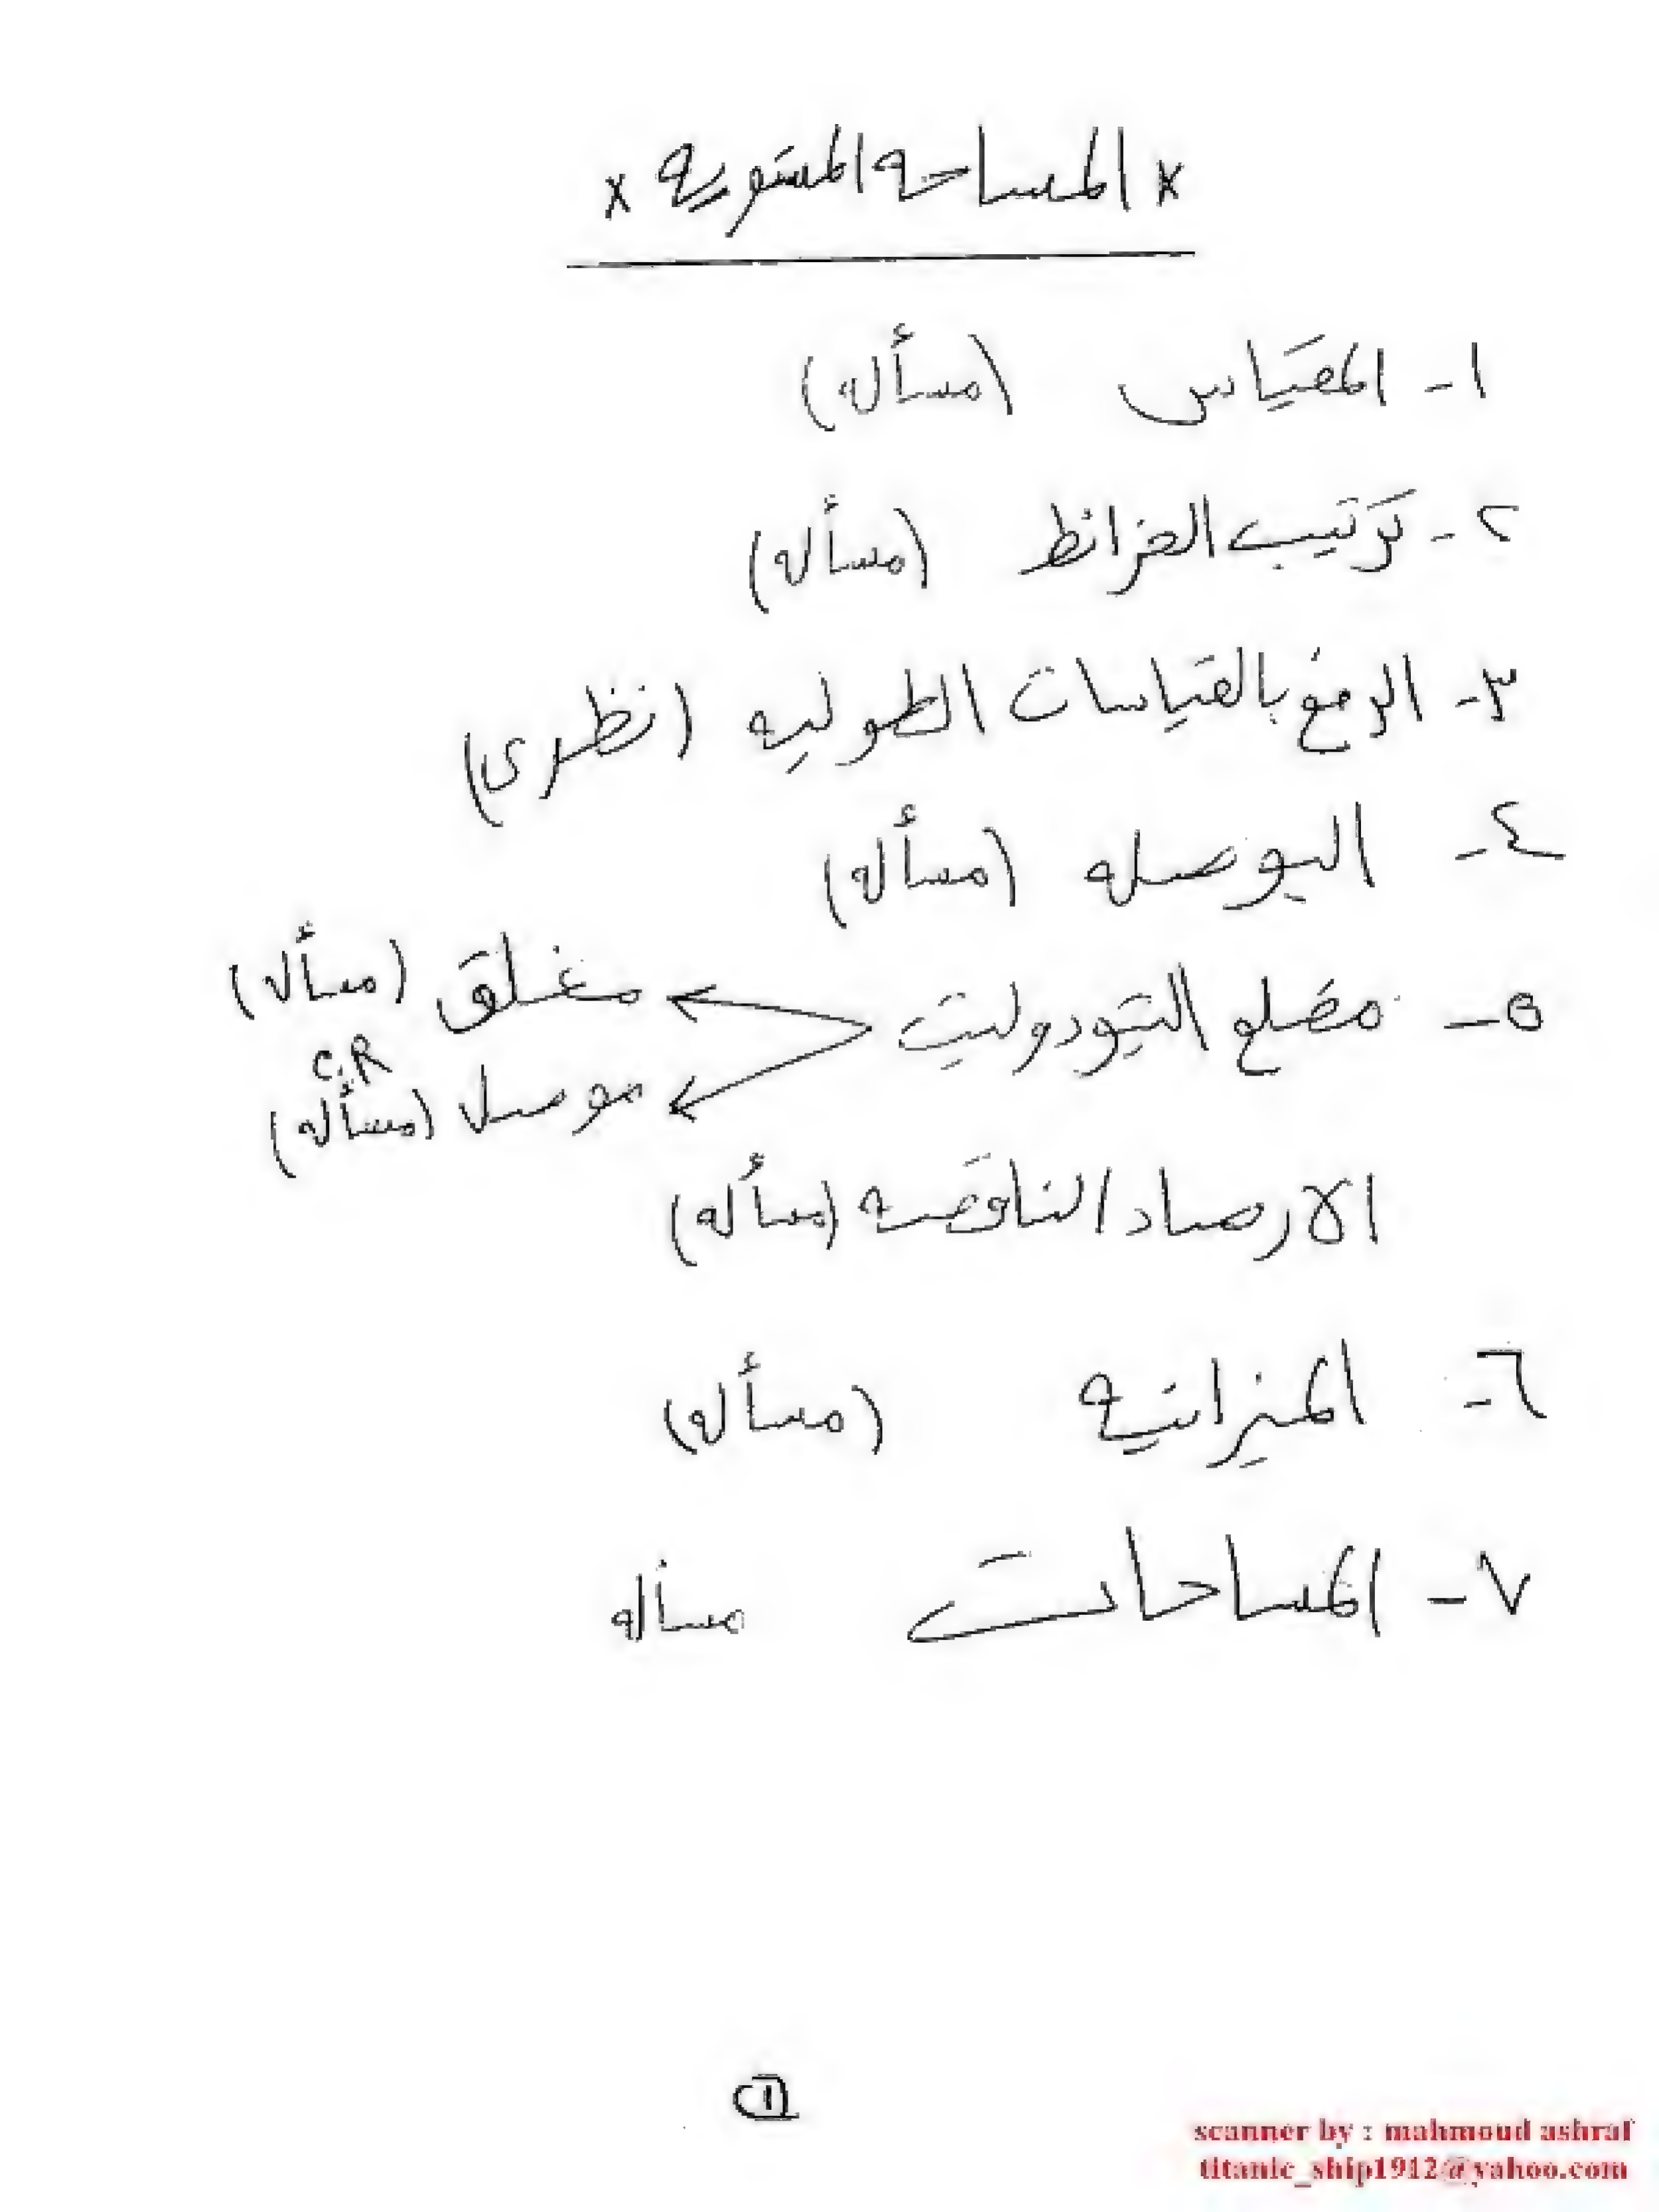 × المساحه المستويه ×
١- المقياس (مسأله)
٢- ترتيب الخرائط (مسأله)
٣- الرفع بالقياسات الطوليه (نظرى)
٤- البوصله (مسأله)
٥- مضلع التيودوليت
مغلق (مسأله)
C.R
موصل (مسأله)
الارصاد الناقصه (مسأله)
٦- الميزانيه (مسأله)
٧- المساحات مسأله
1
scanner by : mahmoud ashraf
titanic_ship1912@yahoo.com